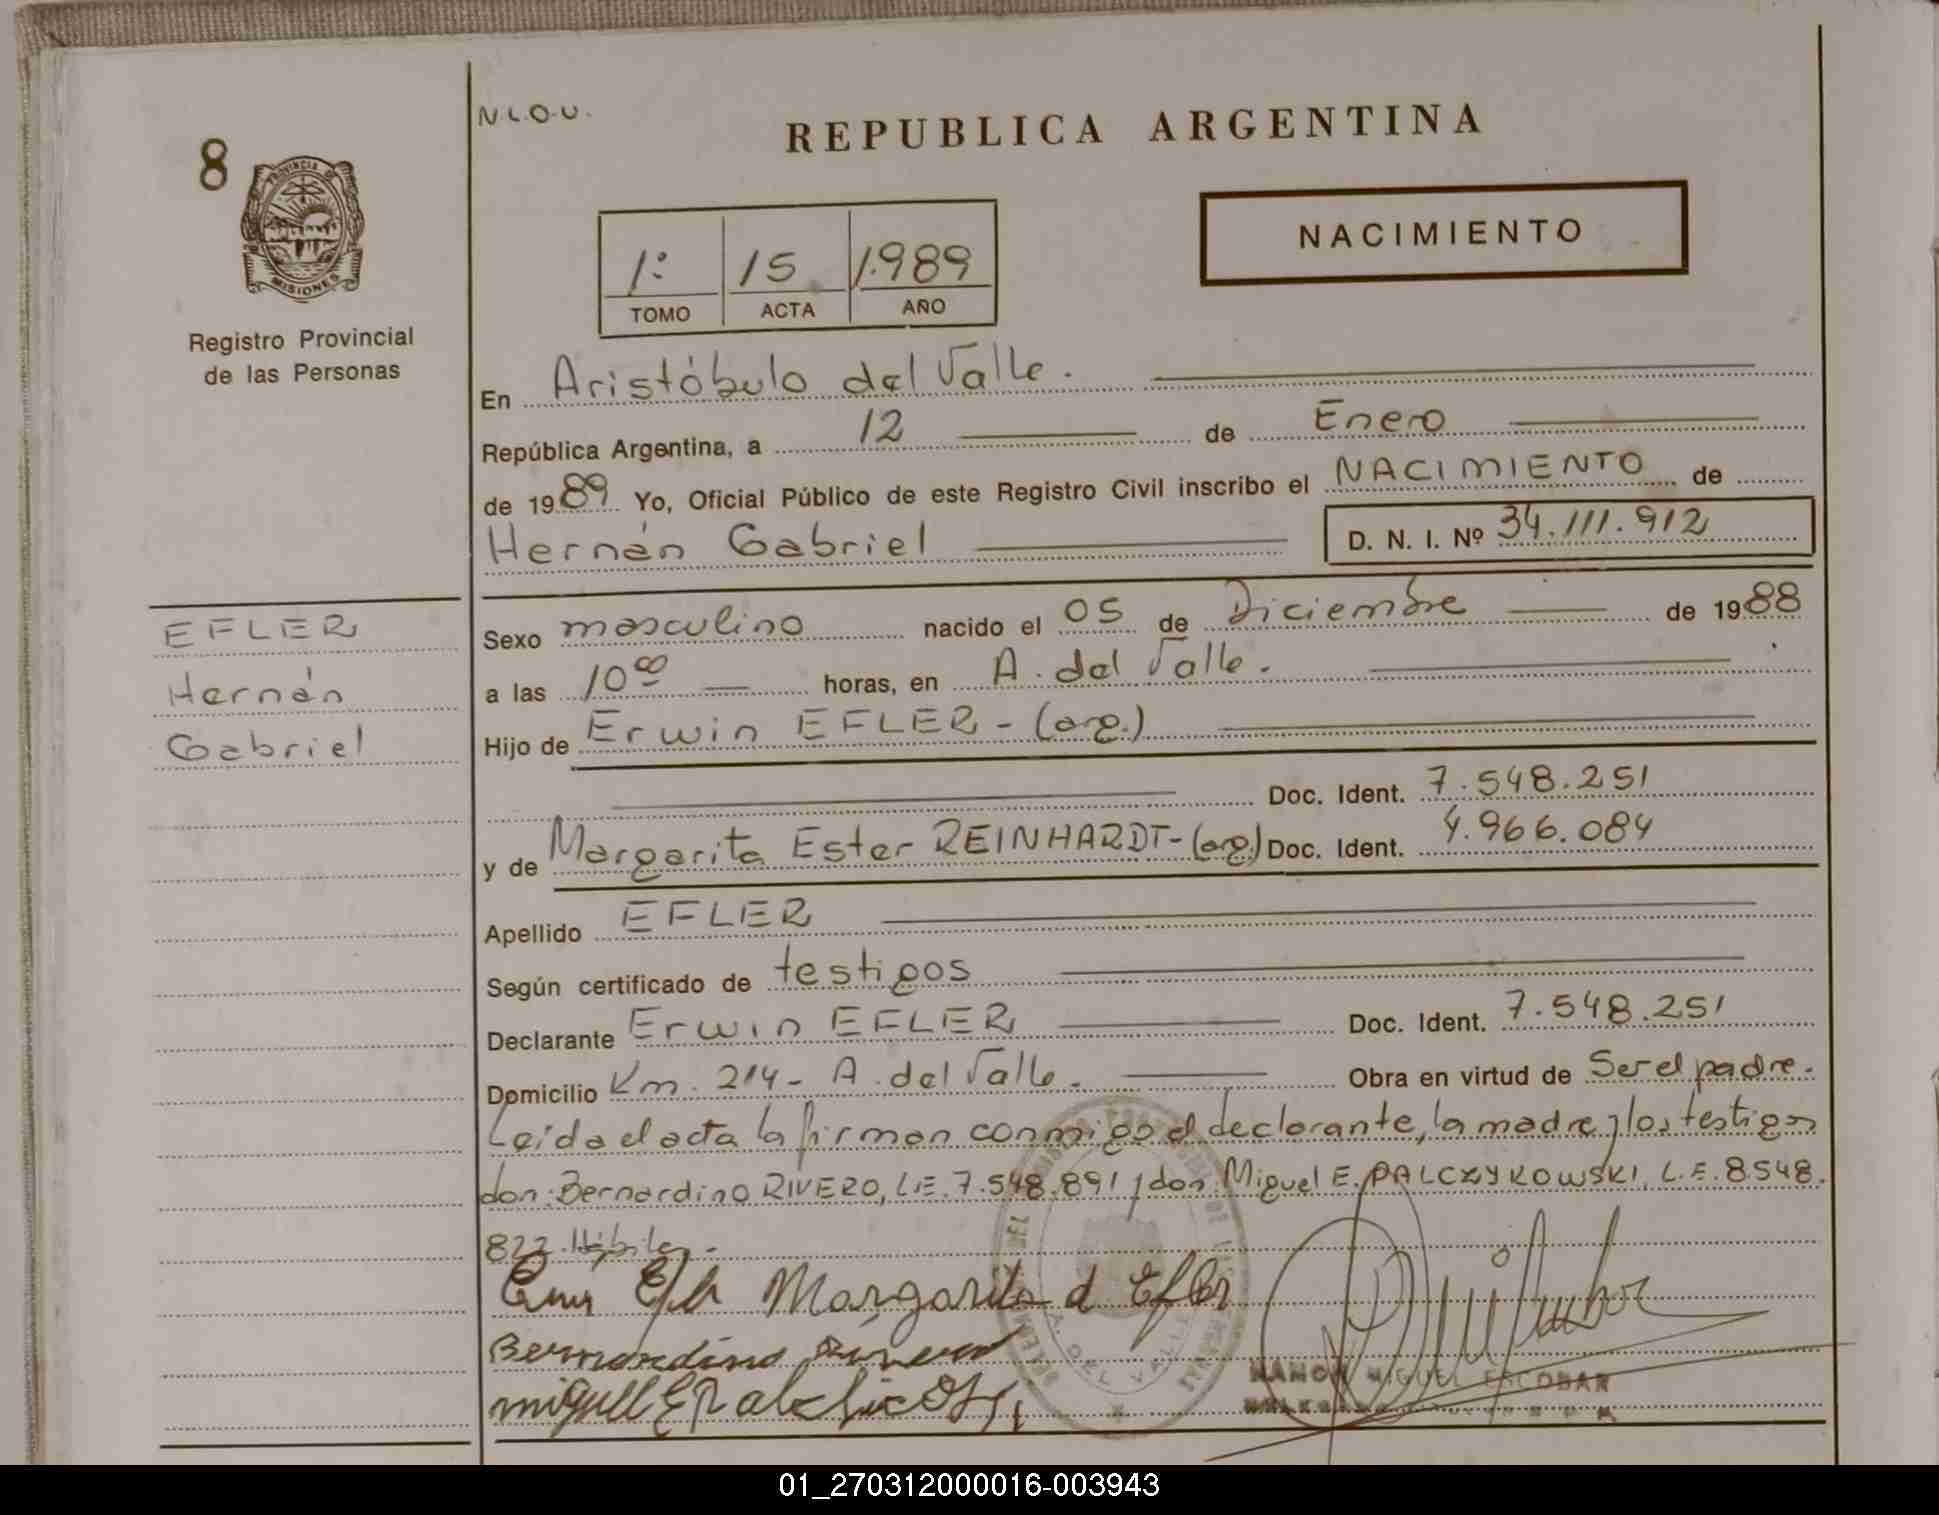 N.L.O.U.
REPUBLICA ARGENTINA
8
PROVINCIA DE
MISIONES
Registro Provincial
de las Personas
NACIMIENTO
1º 15 1.989
TOMO ACTA AÑO
En Aristóbulo del Valle.
República Argentina, a 12 de Enero
de 1989 Yo, Oficial Público de este Registro Civil inscribo el NACIMIENTO de
Hernán Gabriel D. N. I. Nº 34.111.912
EFLER
Hernán
Gabriel
Sexo masculino nacido el 05 de Diciembre de 1988
a las 10 00 horas, en A. del Valle.
Hijo de Erwin EFLER - (arg.)
Doc. Ident. 7.548.251
y de Margarita Ester REINHARDT - (arg.) Doc. Ident. 4.966.084
Apellido EFLER
Según certificado de testigos
Declarante Erwin EFLER Doc. Ident. 7.548.251
Domicilio Km. 214 - A. del Valle. Obra en virtud de Ser el padre.
Leída el acta la firman conmigo el declarante, la madre y los testigos
don: Bernardino RIVERO, L.E. 7.548.891 y don Miguel E. PALCZYKOWSKI, L.E. 8.548.
822. Hábiles.
Margarita d Efler
Bernardino Rivero
A. DEL VALLE
RAMON MIGUEL ESCOBAR
01_270312000016-003943